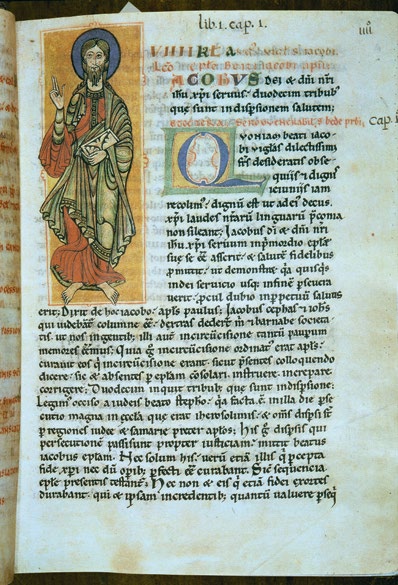 lib. 1. cap. 1.
iiij
IACOBUS dei & dñi nr̃i
ihu xp̃i seruus. duodecim tribub;
que sunt in dispsione salutem;
cap. i
QVONIAM beati iaco
bi uigilias dilectissimi
fr̃s desideratis obse
quiis & dignis
ieiuniis iam
recolim; dignũ est ut ad ei decus.
xp̃i laudes nr̃arũ linguarũ p̃conia
non sileant; Iacobus dei & dñi nr̃i
ihu xp̃i seruum in p̃mordio ep̃le
sue se eẽ asserit. & salutẽ fidelibus
p̃mittit. ut demonstret q̃a quisq̃s
in dei seruicio usq; in finẽ p̃seuera
uerit. p̃cul dubio in p̃petuũ saluus
erit; Dicit de hoc iacobo. apl̃s paulus; Iacobus cephas & ioħs
qui uidebant̃ columne eẽ. dextras dedert̃ m̃ & barnabe societa
tis. ut nos in gentib; illi aut̃ in circũcisione. tantũ paupum
memores eẽmus; Quia g̃ in circũcisione ordinat̃ erat apl̃s.
curauit eos q̃ i circũcisione erant. sicut p̃sentes colloquendo
docere. sic & absentes p̃ ep̃lam cõsolari. instruere. increpare
corrigere; Duodecim inquit tribub; que sunt in dispsione;
Legim; occiso a iudeis beato stepho. q̃a facta ẽ in illa die pse
cutio magna in eccl̃a. que erat iherosolimis. & om̃s dispsi st̃
p̃ regiones iudee & samarie preter apl̃os; His g̃ dispsis qui
persecutionẽ passi sunt propter iusticiam. mittit beatus
iacobus ep̃lam. Nec solum his. uerũ etiã illis q̃ p̃cepta
fide. xp̃i nec dũ opib; p̃fecti eẽ curabant. Sic sequencia
ep̃le presentis testant̃. Nec non & eis q̃ etiã fidei exortes
durabant. qui & ip̃sam in credentib; quantũ ualuere p̃seq̃